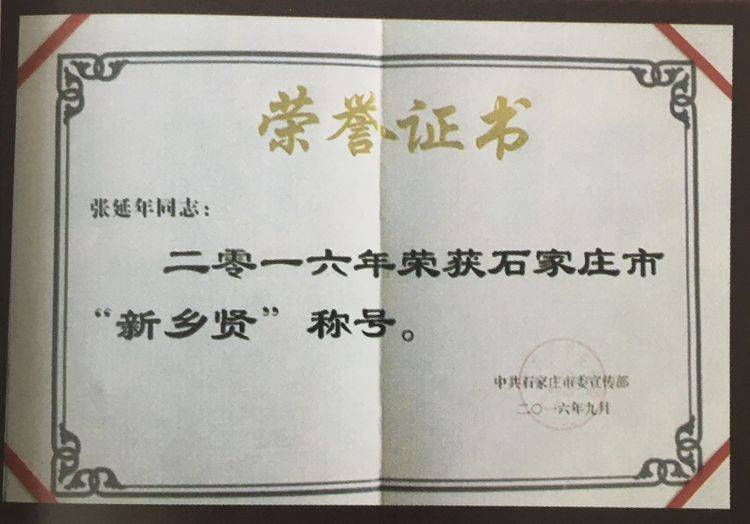 荣誉证书
张延年同志：
二零一六年荣获石家庄市
“新乡贤”称号。
中共石家庄市委宣传部
二〇一六年九月